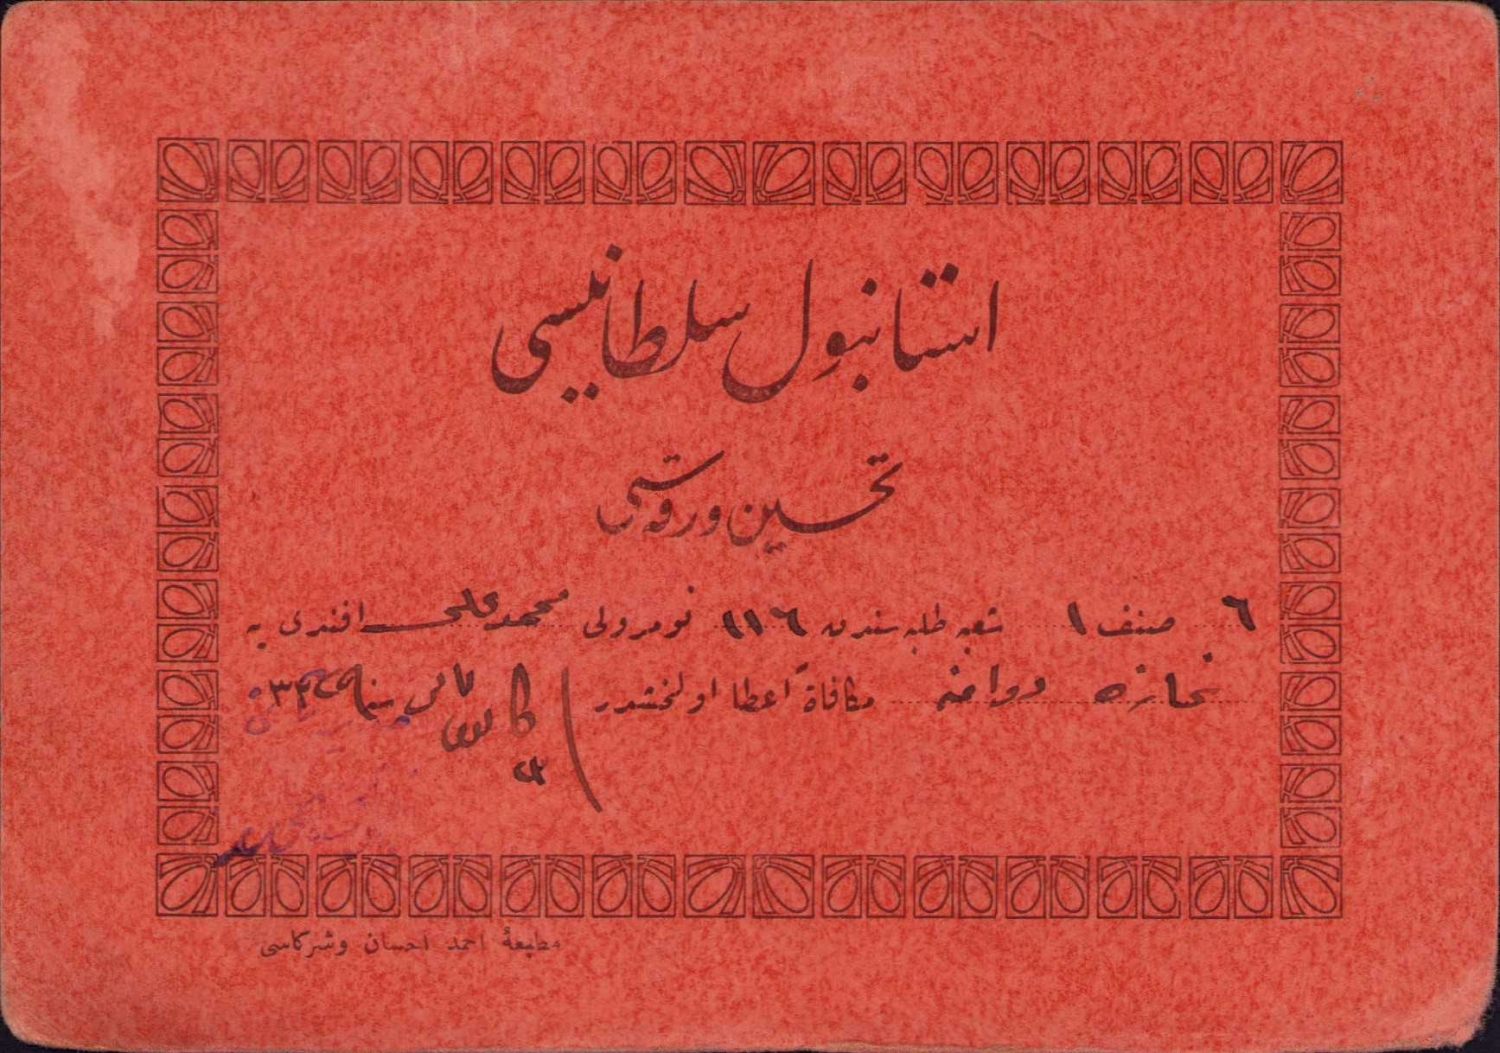 استانبول سلطانیسی
تحسین ورقه‌سی
٦ صنف ١ شعبه طلبه‌سندن ١١٦ نومرولی محمد علی افندی یه
نمازه دوامنه مكافاةً اعطا اولنمشدر كانون ثانی سنه ٣٢٩
مطبعهٔ احمد احسان وشركاسی